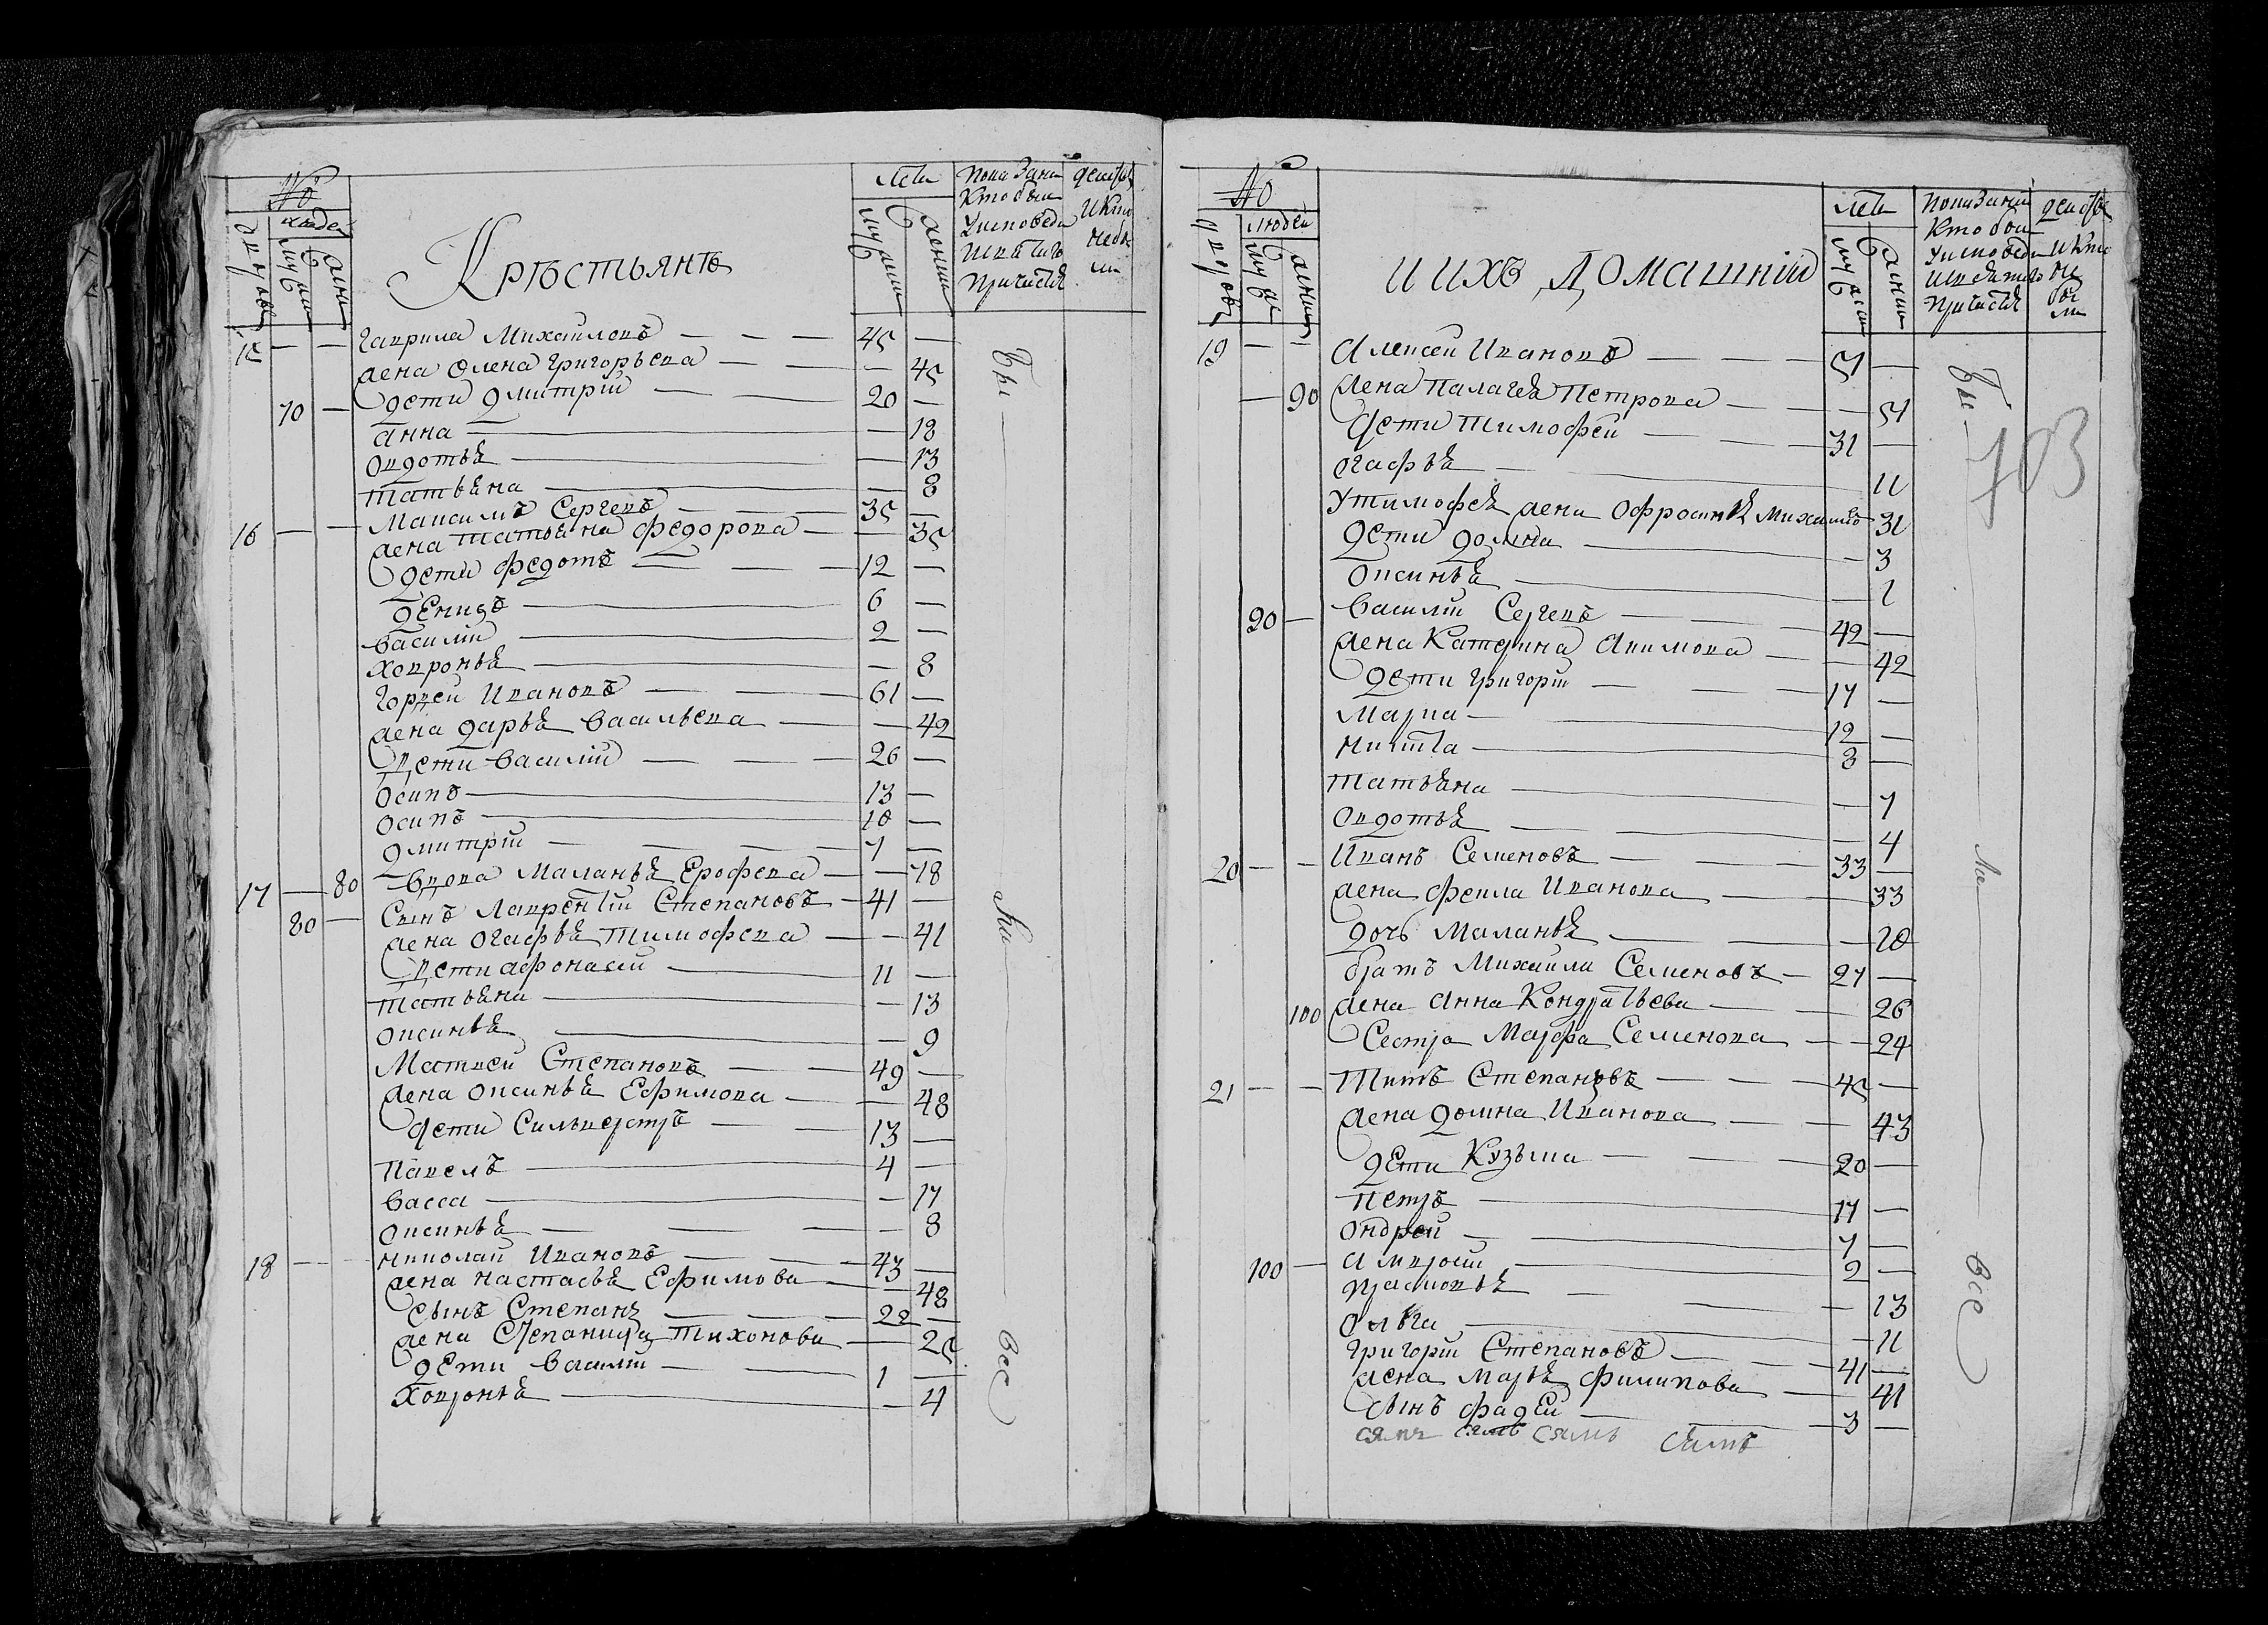 №
людей
Крѣстьянѣ
Лета
15 — — Гаврила Михайловъ — — — 45 —
жена Олена Григорьева — — — 45
70 — дети Дмитрій — — 20 —
Анна — — 18
Овдотья — — 13
Татьяна — — 8
16 — — Максимъ Сергевъ — — 35 —
жена Татьяна Федорова — — 35
дети Федотъ — — — 12 —
Денидъ — 6 —
Василій — 2 —
Ховронья — — 8
Гордей Ивановъ — — 61 —
жена Дарья Васильева — — 42
дети Василій — — 26 —
Осипъ — 13 —
Осипъ — 10 —
Дмитрій — — — 7 —
17 — 80 Вдова Маланья Ерофева — — 78
80 — Сынъ Лаврентій Степановъ — 41 —
жена Огафья Тимофева — — 41
дети Афонасей — 11 —
Татьяна — — 13
Оксинья — — 9
Матвей Степановъ — — 49 —
жена Оксинья Ефимова — — 48
дети Сильверстръ — — 13 —
Павелъ — 4 —
Васса — — 17
Оксинья — — — — 8
18 — — Николай Ивановъ — — 43 —
жена Настасья Ефимова — — 48
сынъ Степанъ — — 22 —
жена Степанида Тихонова — 25
дети Василій — — 1 —
Ховронья — — 4
Бы — ли — все
№
людей
и ихъ Домашній
Лета
19 — — Алексей Ивановъ — — — 51 —
— 90 жена Палагея Петрова — — — 51
дети Тимофей — — — 31 —
Огафья — 11
У Тимофея жена Офросинья Михайло 31
дети Домна — — 3
Оксинья — — 1
90 — Василій Сергевъ — — — 42 —
жена Катерина Акимова — — 42
дети Григорій — — — 17 —
Марка — 12 —
Никита — 3 —
Татьяна — — 7
Овдотья — — — 4
20 — — Иванъ Семеновъ — — — 33 —
жена Фекла Иванова — — 33
дочь Маланья — — — 10
братъ Михаила Семеновъ — 27 —
100 жена Анна Кондратьева — — 26
Сестра Марфа Семенова — — 24
21 — — Титъ Степановъ — — — 45 —
жена Домна Иванова — — — 43
дети Кузьма — — — 20 —
Петръ — 17 —
Ондрей — — 7 —
100 — Амвросій — 2 —
Прасковья — — — 13
Ольга — — 11
Григорій Степановъ — — — 41 —
жена Марья Филипова — — 41
сынъ Фадей — — 3 —
сямъ сямъ сямъ
Бы — ли — все
703